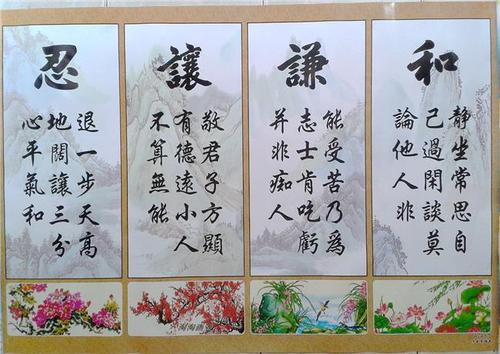 和
靜坐常思自
己過閑談莫
論他人非
謙
能受苦乃爲
志士肯吃虧
并非痴人
讓
敬君子方顯
有德遠小人
不算無能
忍
退一步天高
地闊讓三分
心平氣和